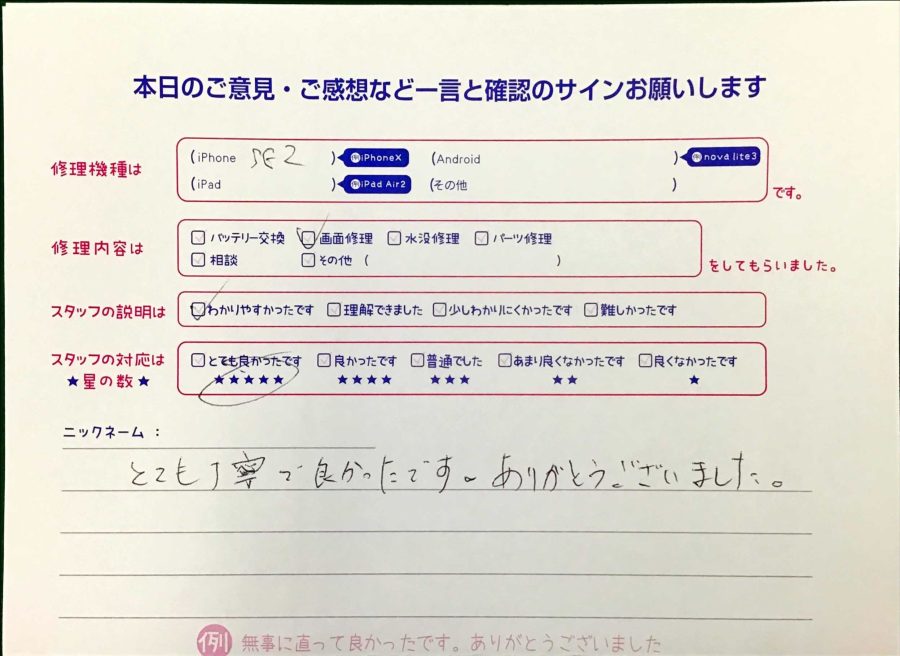 本日のご意見・ご感想など一言と確認のサインお願いします
修理機種は (iPhone SE2 ) 例iPhoneX (Android ) 例nova lite3
(iPad ) 例iPad Air2 (その他 ) です。
修理内容は バッテリー交換 画面修理 水没修理 パーツ修理
相談 その他 ( ) をしてもらいました。
スタッフの説明は わかりやすかったです 理解できました 少しわかりにくかったです 難しかったです
スタッフの対応は とても良かったです 良かったです 普通でした あまり良くなかったです 良くなかったです
★星の数★ ★★★★★ ★★★★ ★★★ ★★ ★
ニックネーム：
とても丁寧で良かったです。ありがとうございました。
例 無事に直って良かったです。ありがとうございました